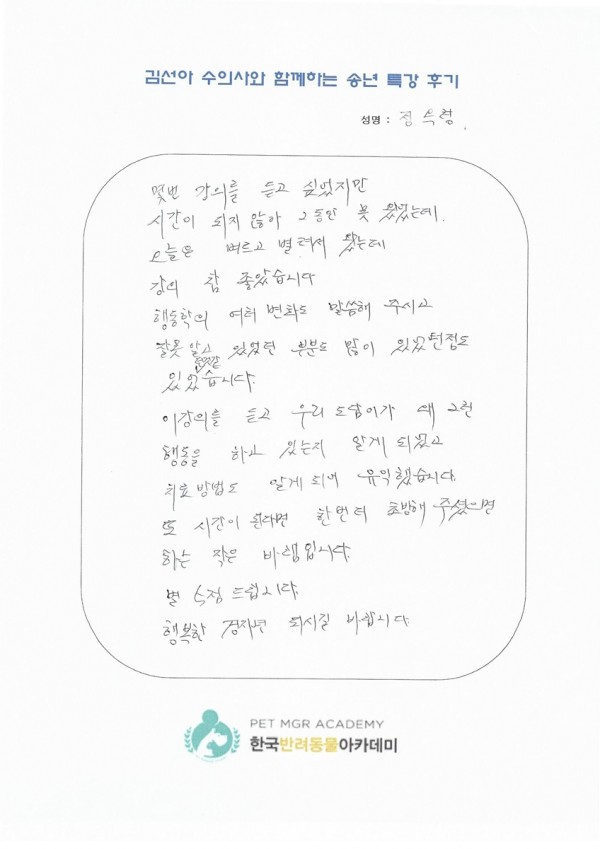 김선아 수의사와 함께하는 송년 특강 후기
성명 : 정숙령
몇번 강의를 듣고 싶었지만
시간이 되지 않아 그동안 못 왔었는데
오늘은 벼르고 별려서 왔는데
강의 참 좋았습니다
행동학의 여러 변화도 말씀해 주시고
잘못 알고 있었던 부분도 많이 있었던점도
있었습니다.
이강의를 듣고 우리 도담이가 왜 그런
행동을 하고 있는지 알게 되었고
치료방법도 알게 되어 유익했습니다.
또 시간이 된다면 한번 더 초빙해 주셨으면
하는 작은 바램입니다.
별 5점 드립니다.
행복한 경자년 되시길 바랍니다
PET MGR ACADEMY
한국반려동물아카데미